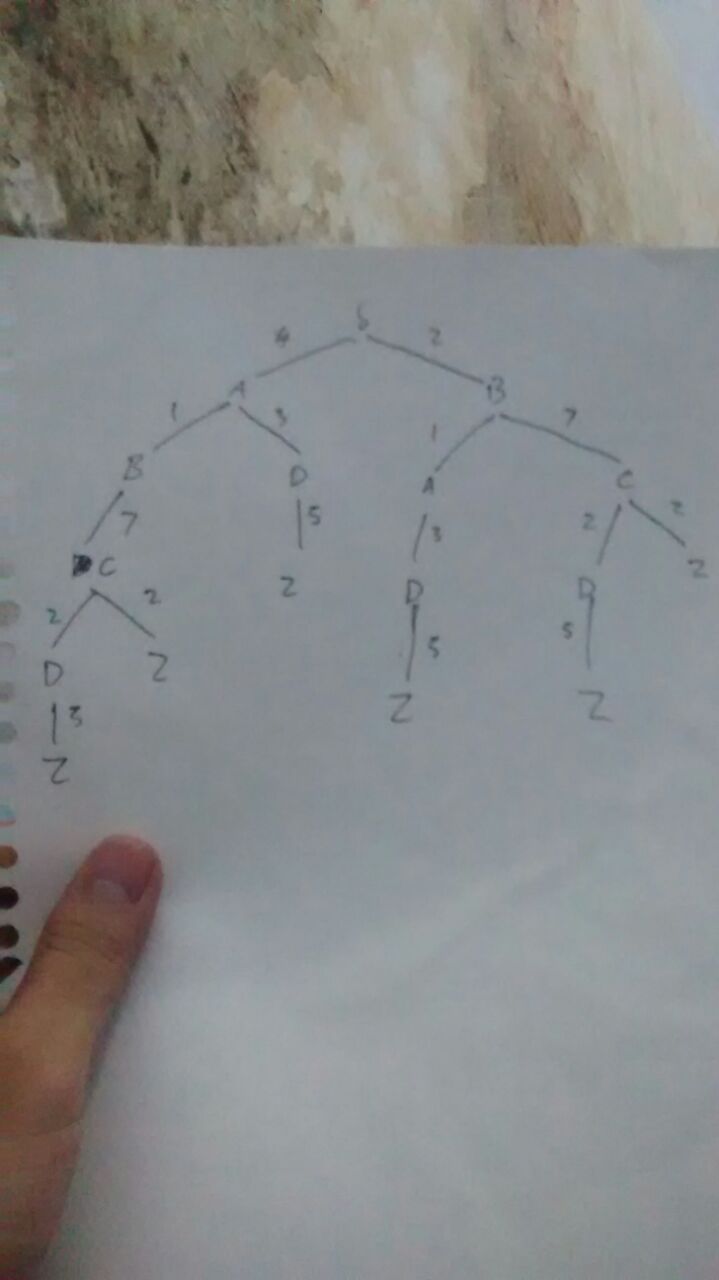 S
4 2
A B
1 3 1 7
B D A C
7 5 3 2 2
C Z D D Z
2 2 5 5
D Z Z Z
3
Z